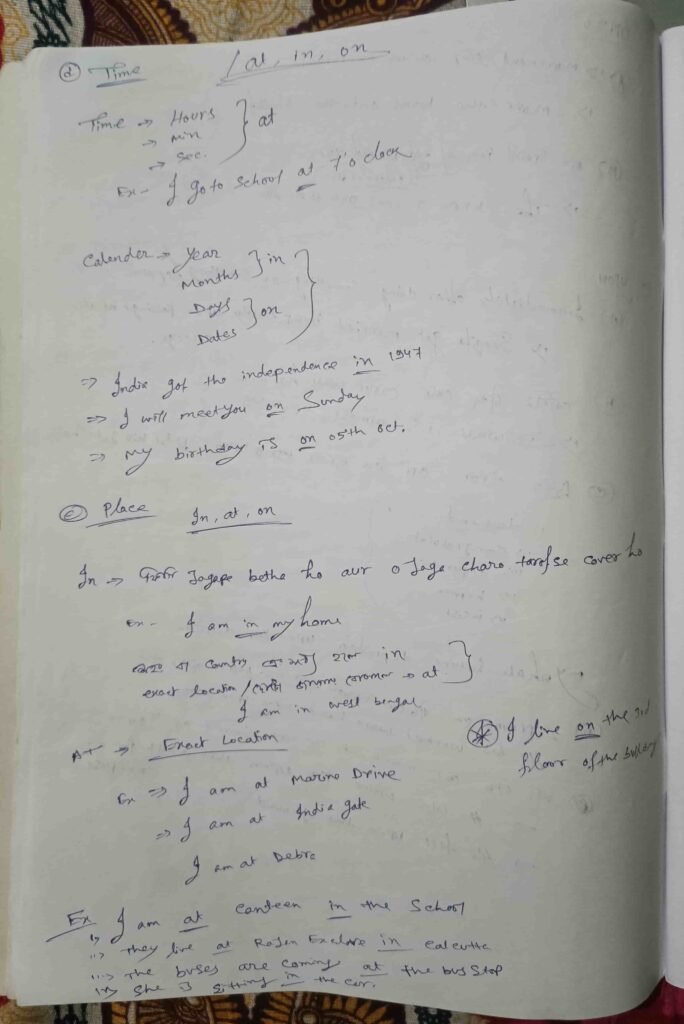 (d) Time / at, in, on
Time → Hours } at
→ min
→ sec.
Ex - I go to school at 7'o clock
Calender → Year } in
Months
Days } on
Dates
⇒ India got the independence in 1947
⇒ I will meet you on Sunday
⇒ My birthday is on 05th Oct.
(e) Place In, at, on
In → Jagape betha ho aur o Jaga charo tarafse cover ho
Ex - I am in my home
country, in
exact location / at
I am in west bengal
AT → Exact Location
I live on the 3rd
floor of the building
Ex ⇒ I am at Marine Drive
⇒ I am at India gate
I am at Debra
Ex I am at canteen in the School
ii> They live at in Calcutta
iii> The buses are coming at the bus stop
iv> She is sitting in the car.